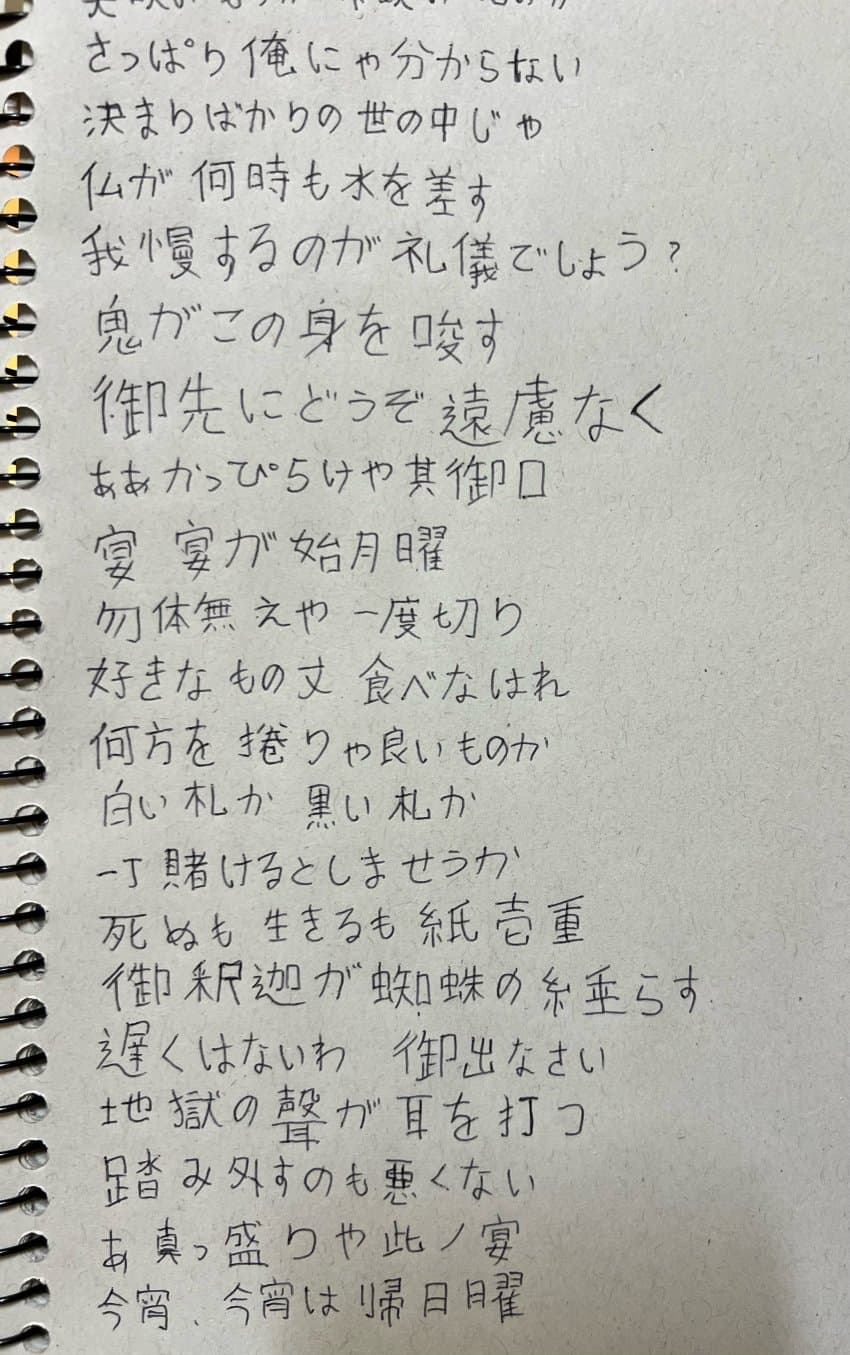 さっぱり俺にゃ分からない
決まりばかりの世の中じゃ
仏が 何時も水を差す
我慢するのが礼儀でしょう?
鬼がこの身を唆す
御先にどうぞ遠慮なく
ああかっぴらけや其御口
宴 宴が始月曜
勿体無えや 一度切り
好きなもの丈 食べなはれ
何方を捲りゃ良いものか
白い札か 黒い札か
一丁賭けるとしませうか
死ぬも 生きるも 紙壱重
御釈迦が蜘蛛の糸垂らす
遅くはないわ 御出なさい
地獄の聲が耳を打つ
踏み外すのも悪くない
あ 真っ盛りや此ノ宴
今宵、今宵は帰日曜